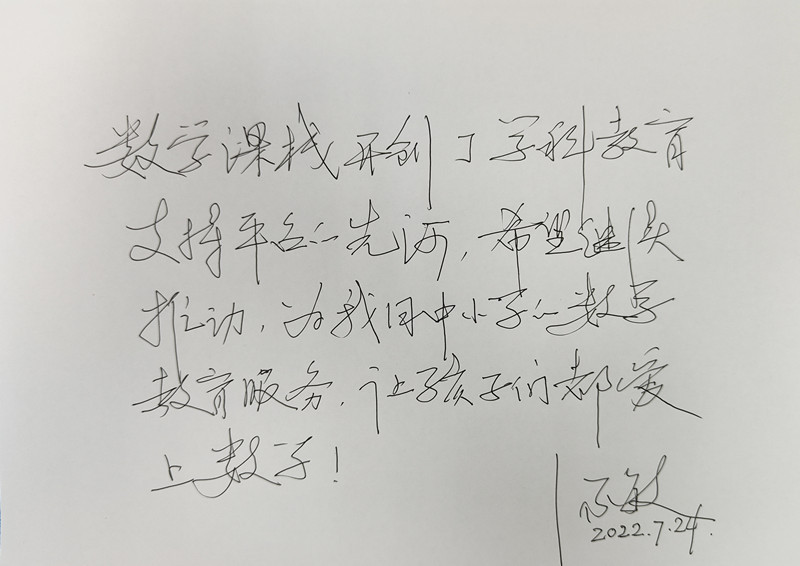 数学课栈开创了学科教育
支撑平台的先河,希望继续
推动,为我国中小学的数学
教育服务,让孩子们都爱
上数学!
敏
2022.7.24.